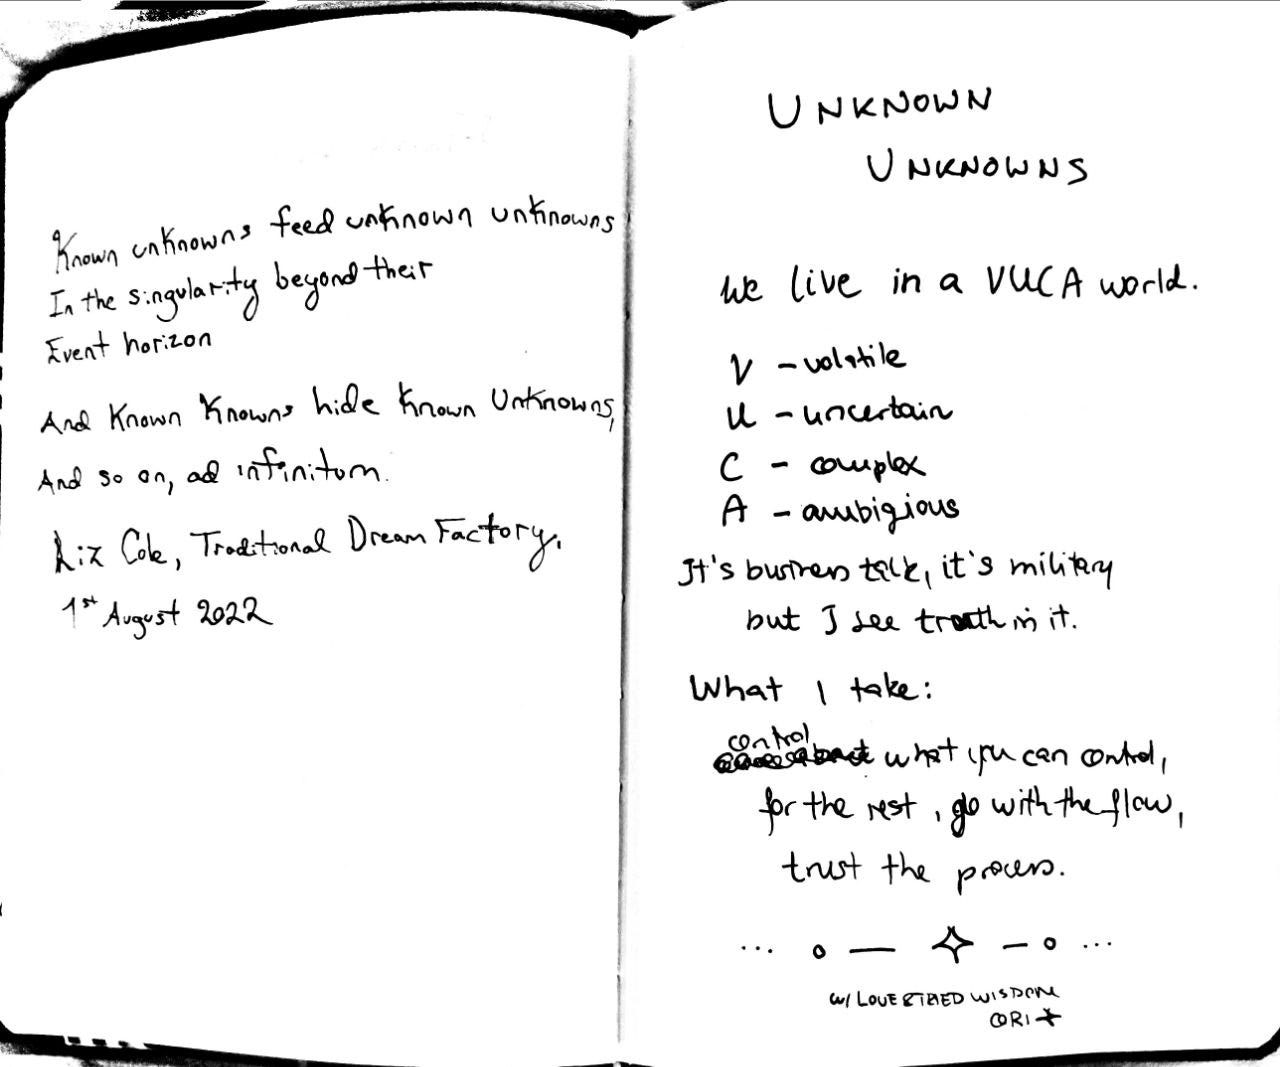 Known unknowns feed unknown unknowns
In the singularity beyond their
Event horizon
And Known Knowns hide Known Unknowns,
And so on, ad infinitum.
Liz Cole, Traditional Dream Factory,
1st August 2022
UNKNOWN
UNKNOWNS
We live in a VUCA world.
V - volatile
U - uncertain
C - complex
A - ambigious
It's business talk, it's military
but I see truth in it.
What I take:
control
what you can control,
for the rest, go with the flow,
trust the process.
... o — ✧ – o ...
w/ LOVE & TIRED WISDOM
ORI